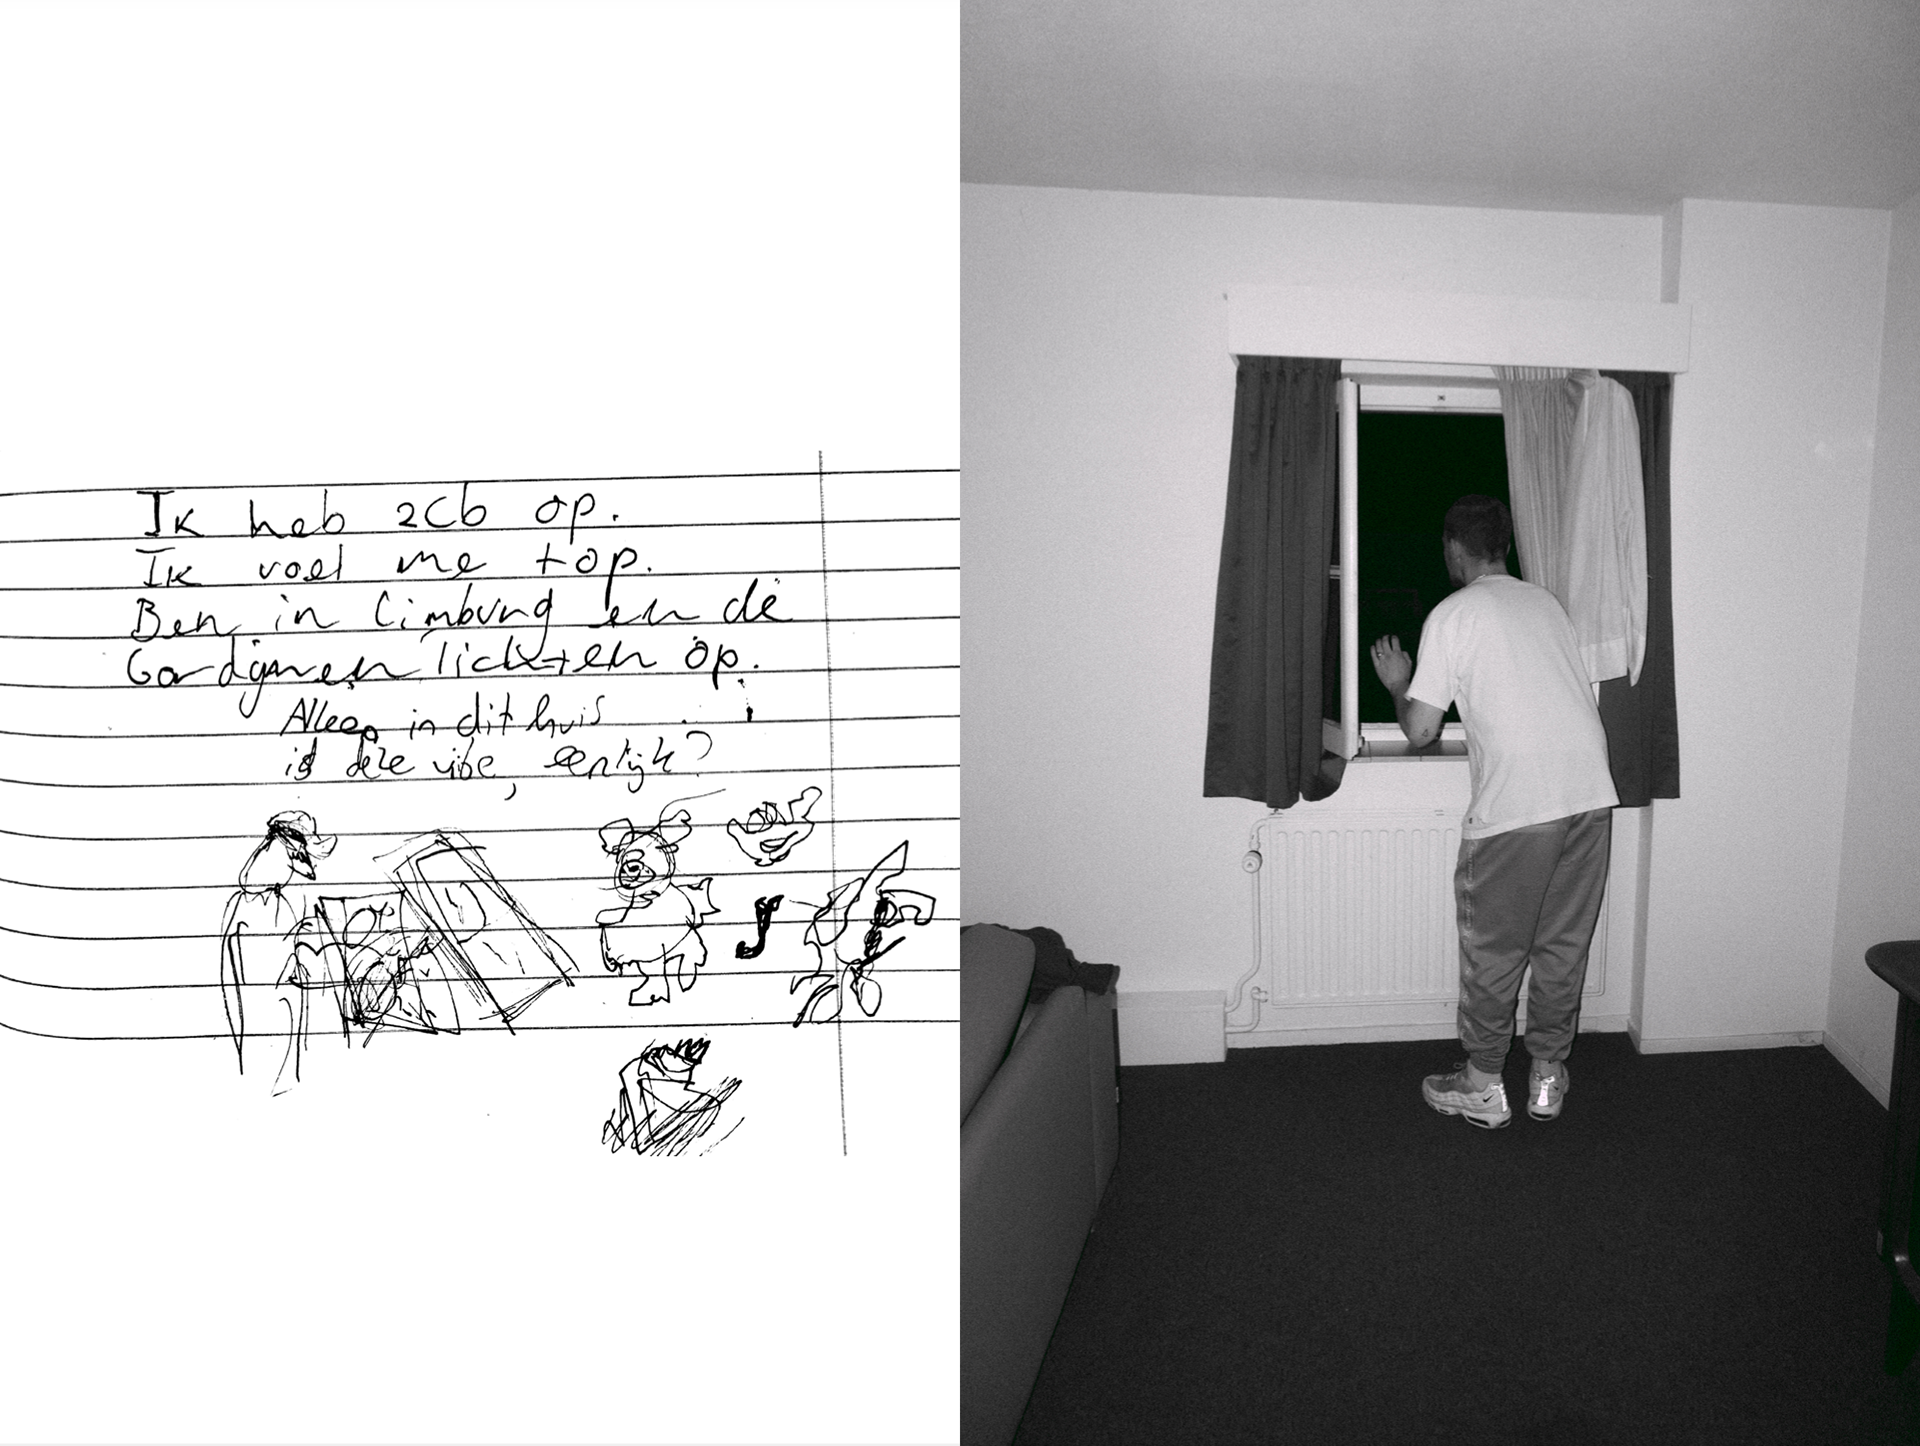 Ik heb 2cb op.
Ik voel me top.
Ben in Limburg en de
Gordijnen lichten op.
Alleen in dit huis
is deze vibe, eerlijk?